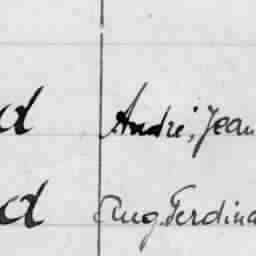 d André, Jean
d Aug. Ferdina